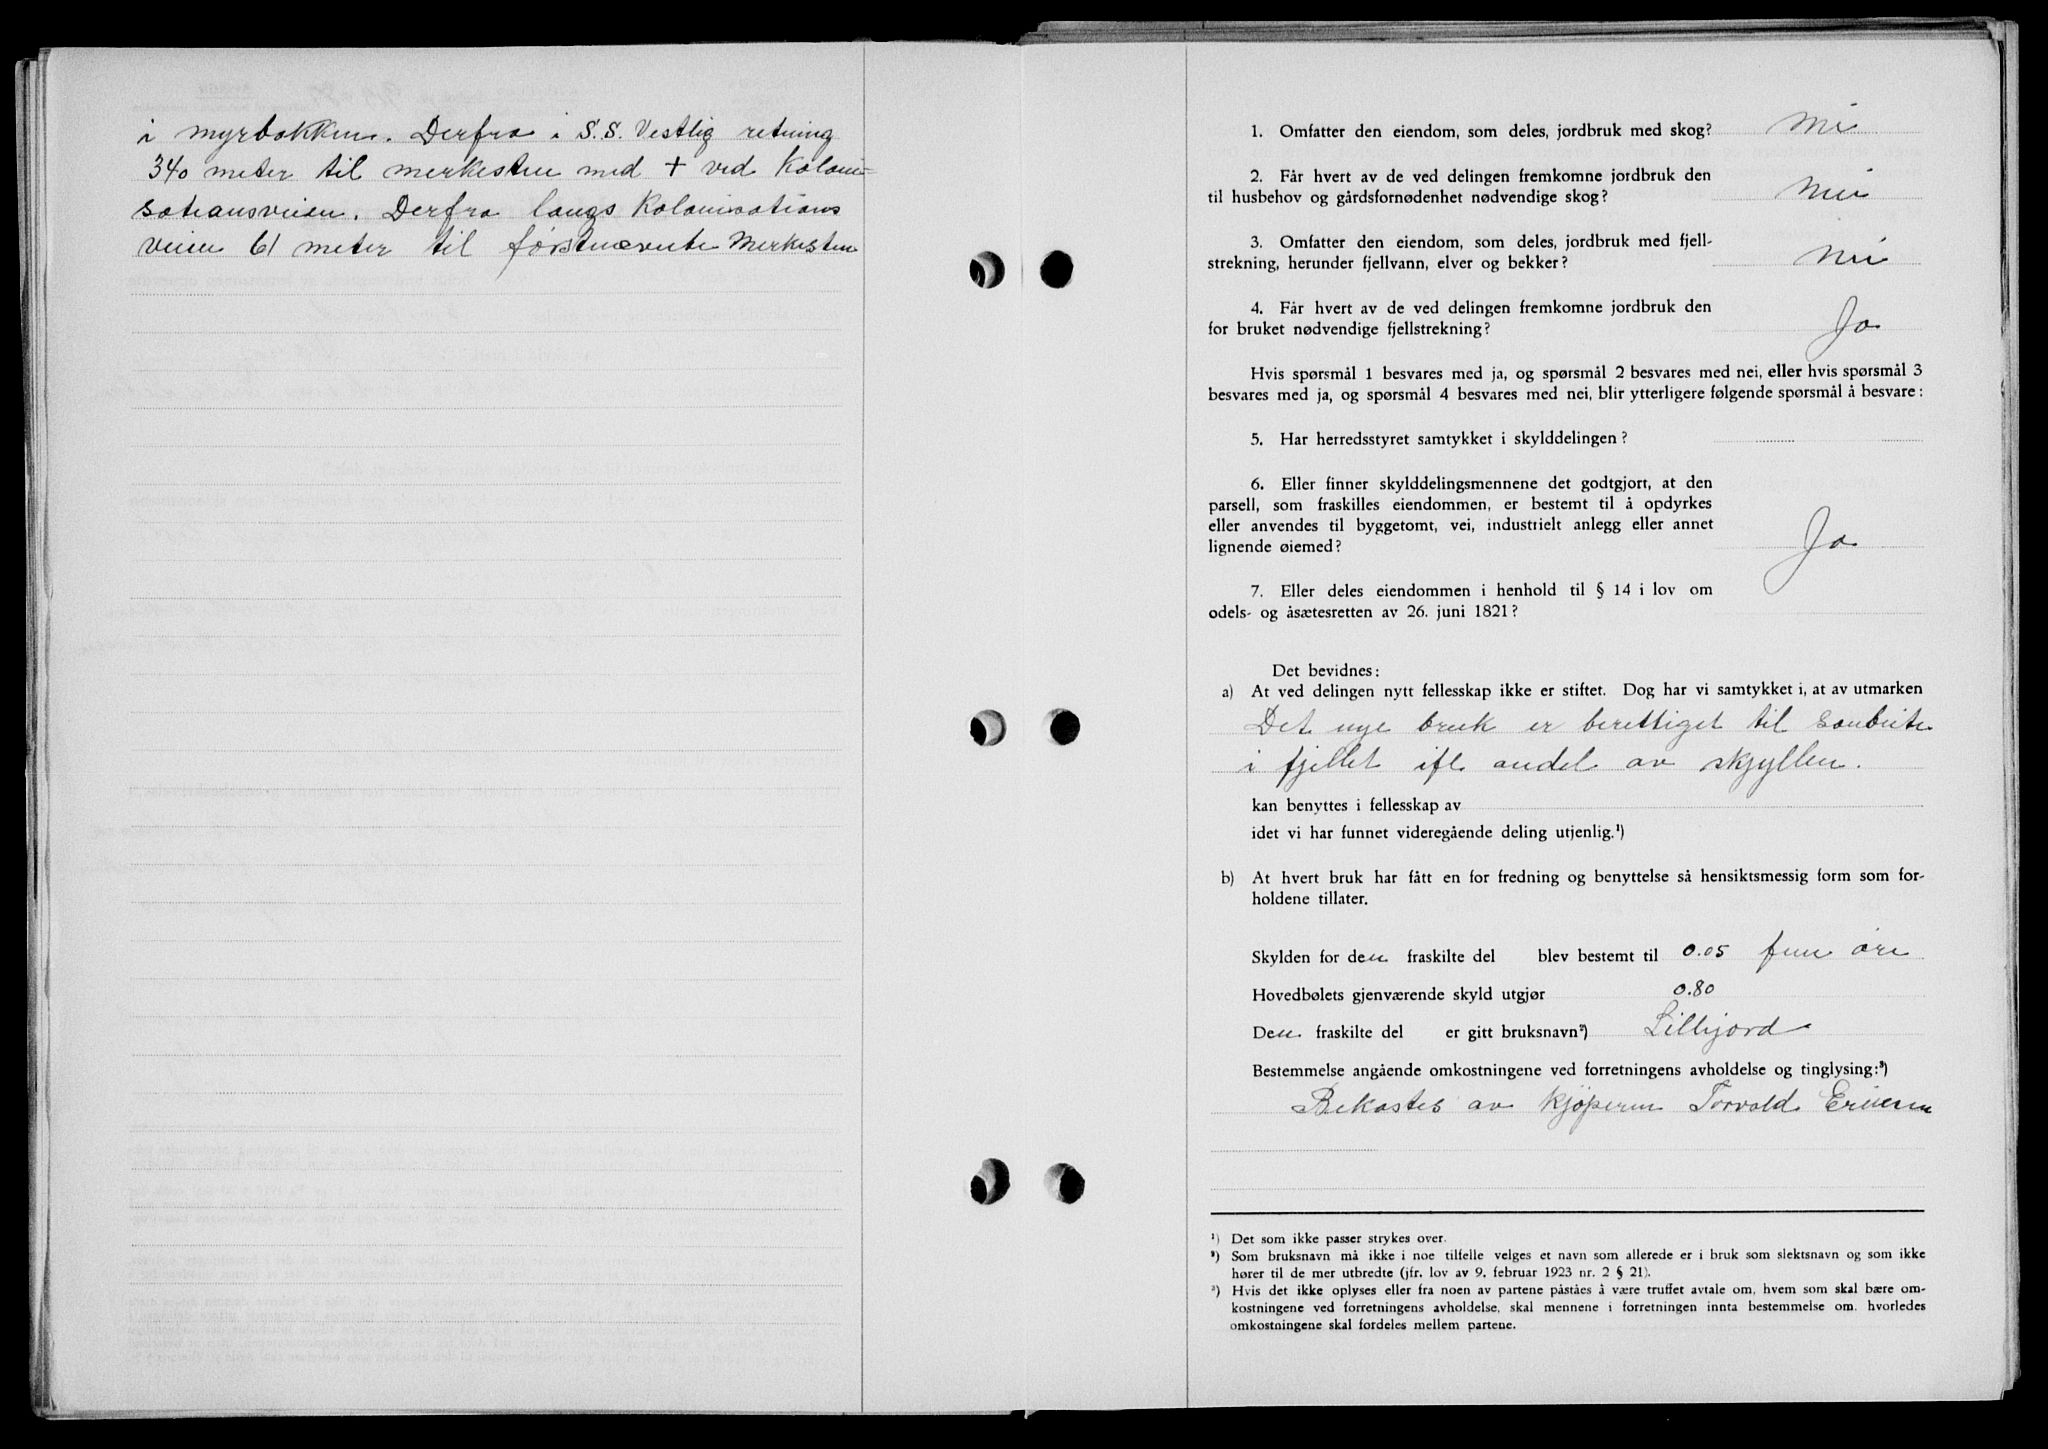 i myrbakken. Derfra i S.S. Vestlig retning
340 meter til merkesten med + ved Koloni-
sationsveien. Derfra langs Kolonisations
veien 61 meter til førstnævnte Merkesten
1. Omfatter den eiendom, som deles, jordbruk med skog? Nei
2. Får hvert av de ved delingen fremkomne jordbruk den
til husbehov og gårdsfornødenhet nødvendige skog? Nei
3. Omfatter den eiendom, som deles, jordbruk med fjell-
strekning, herunder fjellvann, elver og bekker? Nei
4. Får hvert av de ved delingen fremkomne jordbruk den
for bruket nødvendige fjellstrekning? Ja
Hvis spørsmål 1 besvares med ja, og spørsmål 2 besvares med nei, eller hvis spørsmål 3
besvares med ja, og spørsmål 4 besvares med nei, blir ytterligere følgende spørsmål å besvare:
5. Har herredsstyret samtykket i skylddelingen?
6. Eller finner skylddelingsmennene det godtgjort, at den
parsell, som fraskilles eiendommen, er bestemt til å opdyrkes
eller anvendes til byggetomt, vei, industrielt anlegg eller annet
lignende øiemed? Ja
7. Eller deles eiendommen i henhold til § 14 i lov om
odels- og åsætesretten av 26. juni 1821?
Det bevidnes:
a) At ved delingen nytt fellesskap ikke er stiftet. Dog har vi samtykket i, at av utmarken
Det nye bruk er berettiget til saubeite
i fjellet ifl andel av skjyllen.
kan benyttes i fellesskap av
idet vi har funnet videregående deling utjenlig.¹)
b) At hvert bruk har fått en for fredning og benyttelse så hensiktsmessig form som for-
holdene tillater.
Skylden for den fraskilte del blev bestemt til 0.05 fem øre
Hovedbølets gjenværende skyld utgjør 0.80
Den fraskilte del er gitt bruksnavn²) Lillejord
Bestemmelse angående omkostningene ved forretningens avholdelse og tinglysing:³)
Bekostes av kjøperen Torvald Eriksen
¹) Det som ikke passer strykes over.
²) Som bruksnavn må ikke i noe tilfelle velges et navn som allerede er i bruk som slektsnavn og som ikke
hører til de mer utbredte (jfr. lov av 9. februar 1923 nr. 2 § 21).
³) Hvis det ikke oplyses eller fra noen av partene påståes å være truffet avtale om, hvem som skal bære om-
kostningene ved forretningens avholdelse, skal mennene i forretningen innta bestemmelse om, hvorledes
omkostningene skal fordeles mellem partene.